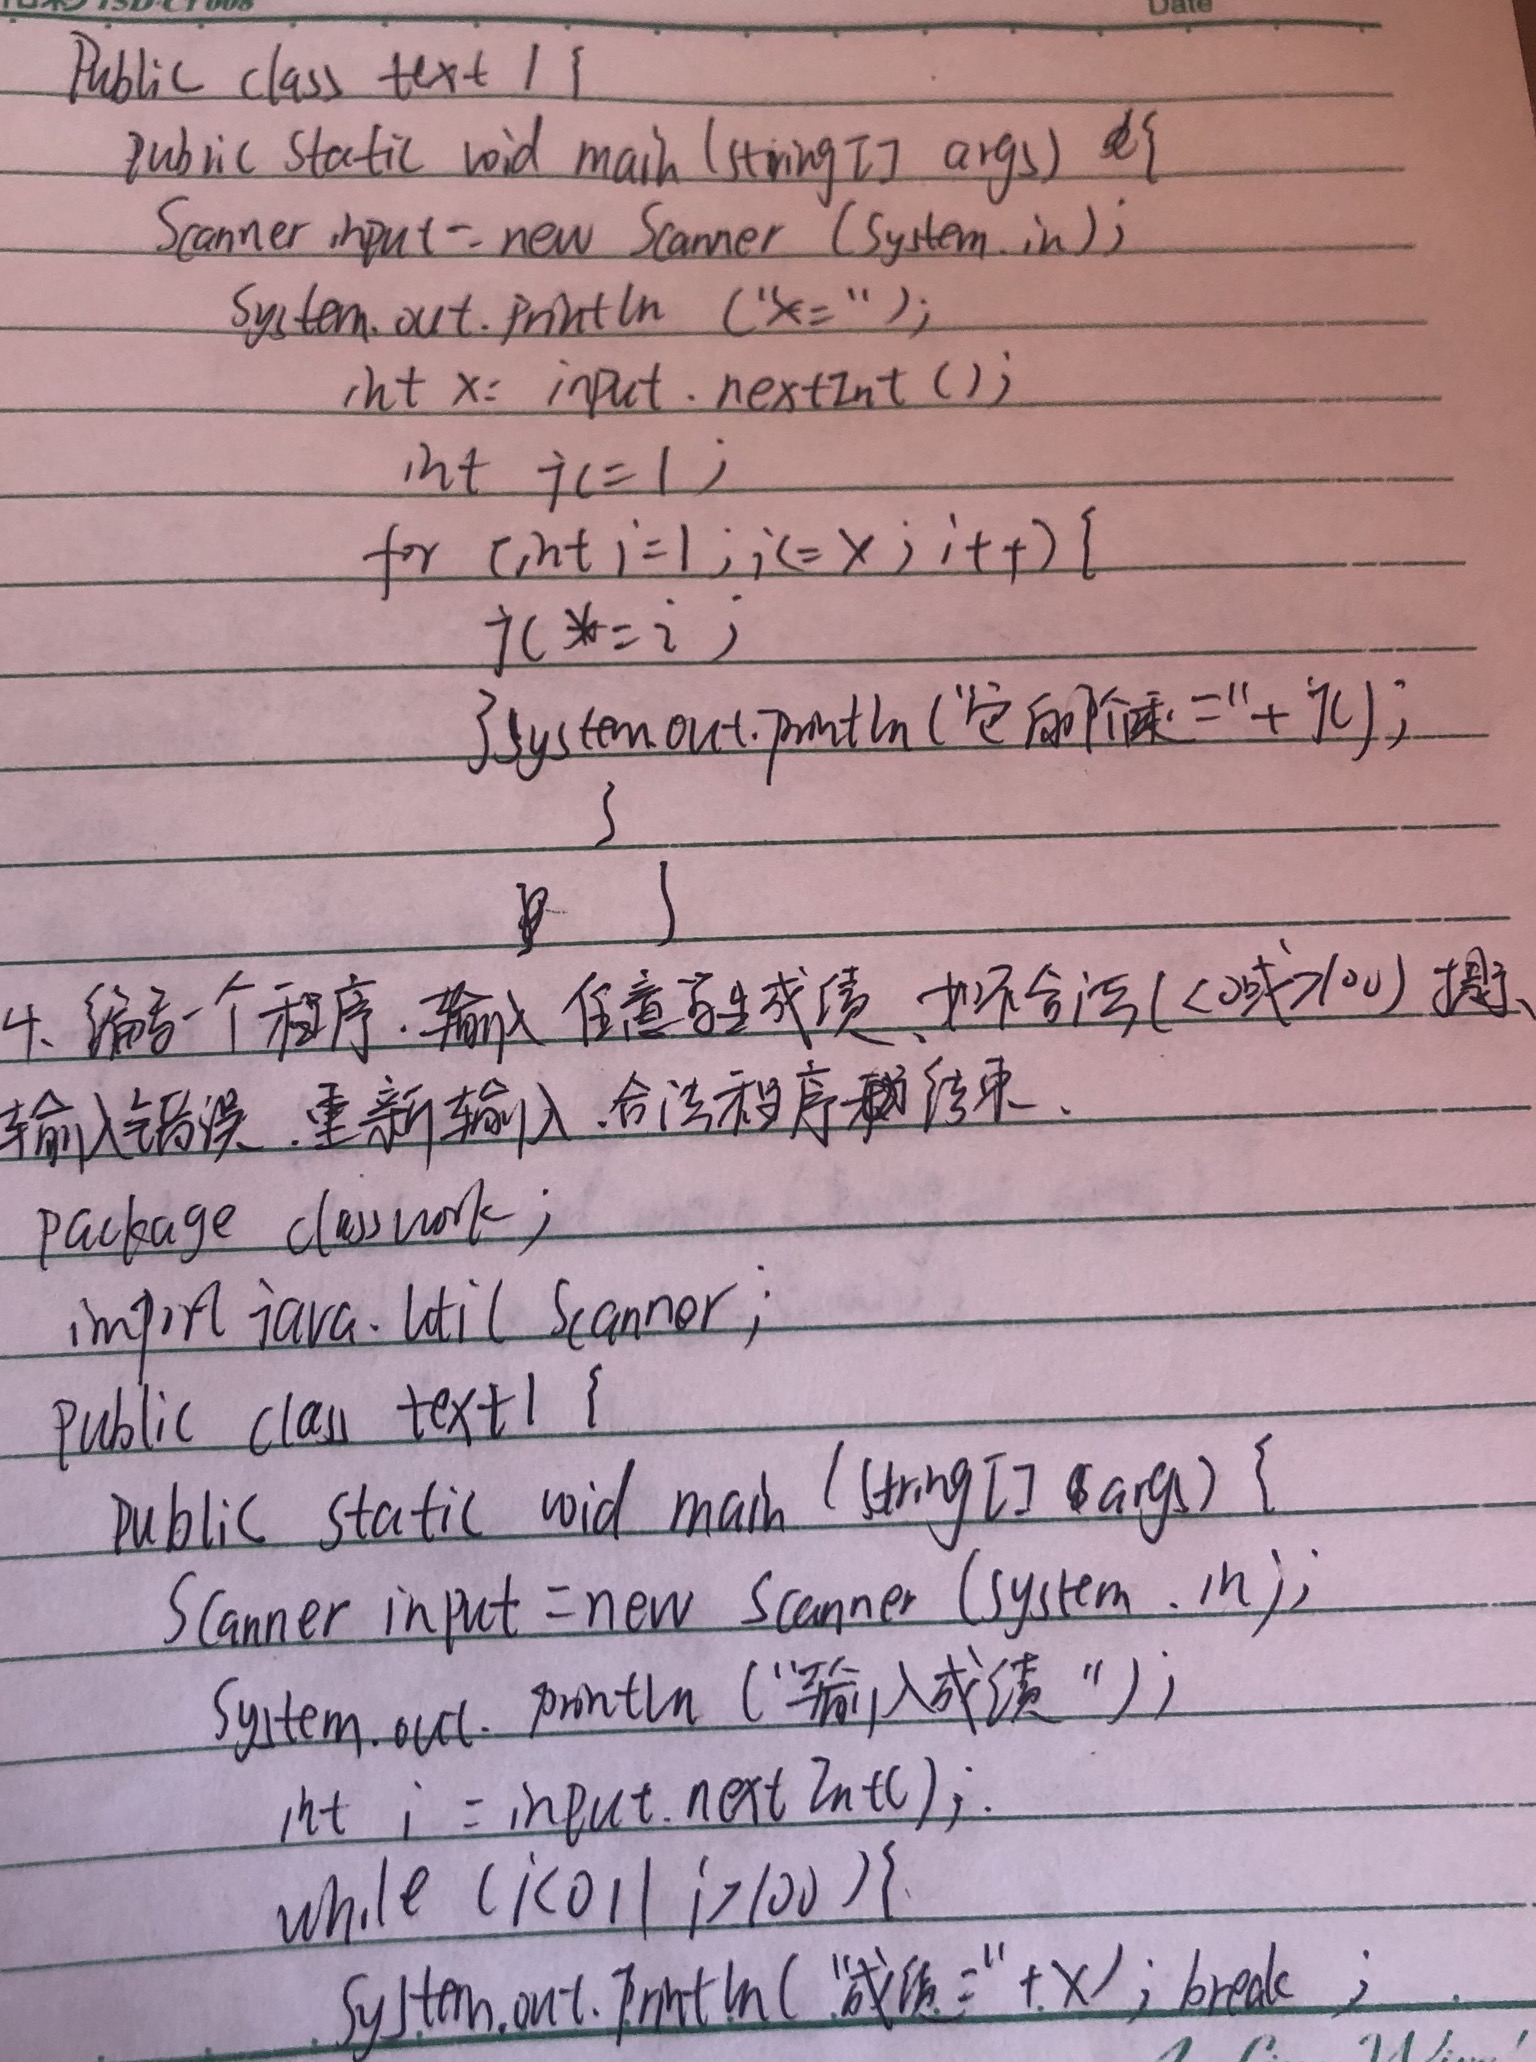 TSD-CT008 Date
Public class text 1 {
public static void main (string[] args) {
Scanner input = new Scanner (System.in);
System.out.println ("x=");
int x= input.nextInt();
int jc=1;
for (int i=1;i<=x;i++){
jc*=i;
}system.out.println("它的阶乘="+jc);
}
}
4、编写一个程序.输入任意学生成绩、如不合法(<0或>100)提示、
输入错误.重新输入.合法程序 结束、
package classwork;
import java.util Scanner;
public class text1 {
public static void main (string[] args) {
Scanner input = new Scanner (system.in);
System.out.println ("输入成绩");
int i = input.nextInt();
while (i<0||i>100){
System.out.println("成绩="+x);break;